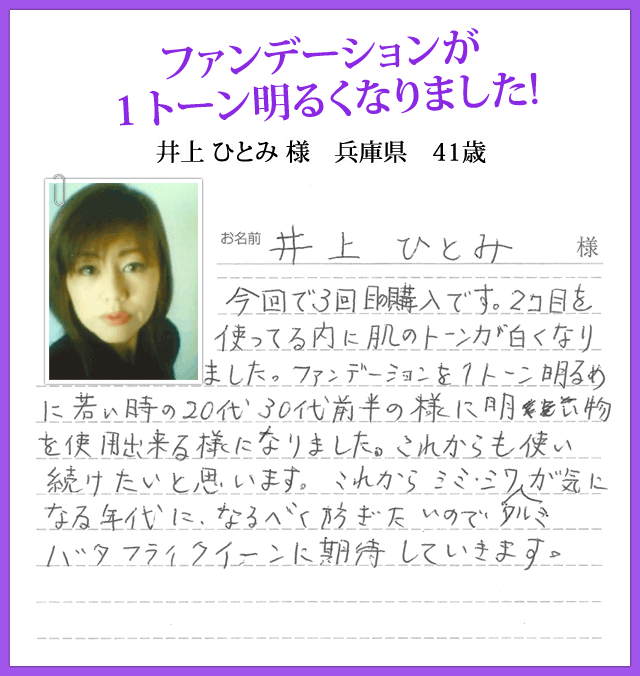 ファンデーションが
1トーン明るくなりました!
井上 ひとみ 様　兵庫県　41歳
お名前 井上 ひとみ 様
今回で3回目購入です。2コ目を
使ってる内に肌のトーンが白くなり
ました。ファンデーションを1トーン明るめ
に若い時の20代30代前半の様に明るい物
を使用出来る様になりました。これからも使い
続けたいと思います。これからシミ・シワが気に
なる年代に、なるべく防ぎたいのでアルミ
バタフライクイーンに期待していきます。